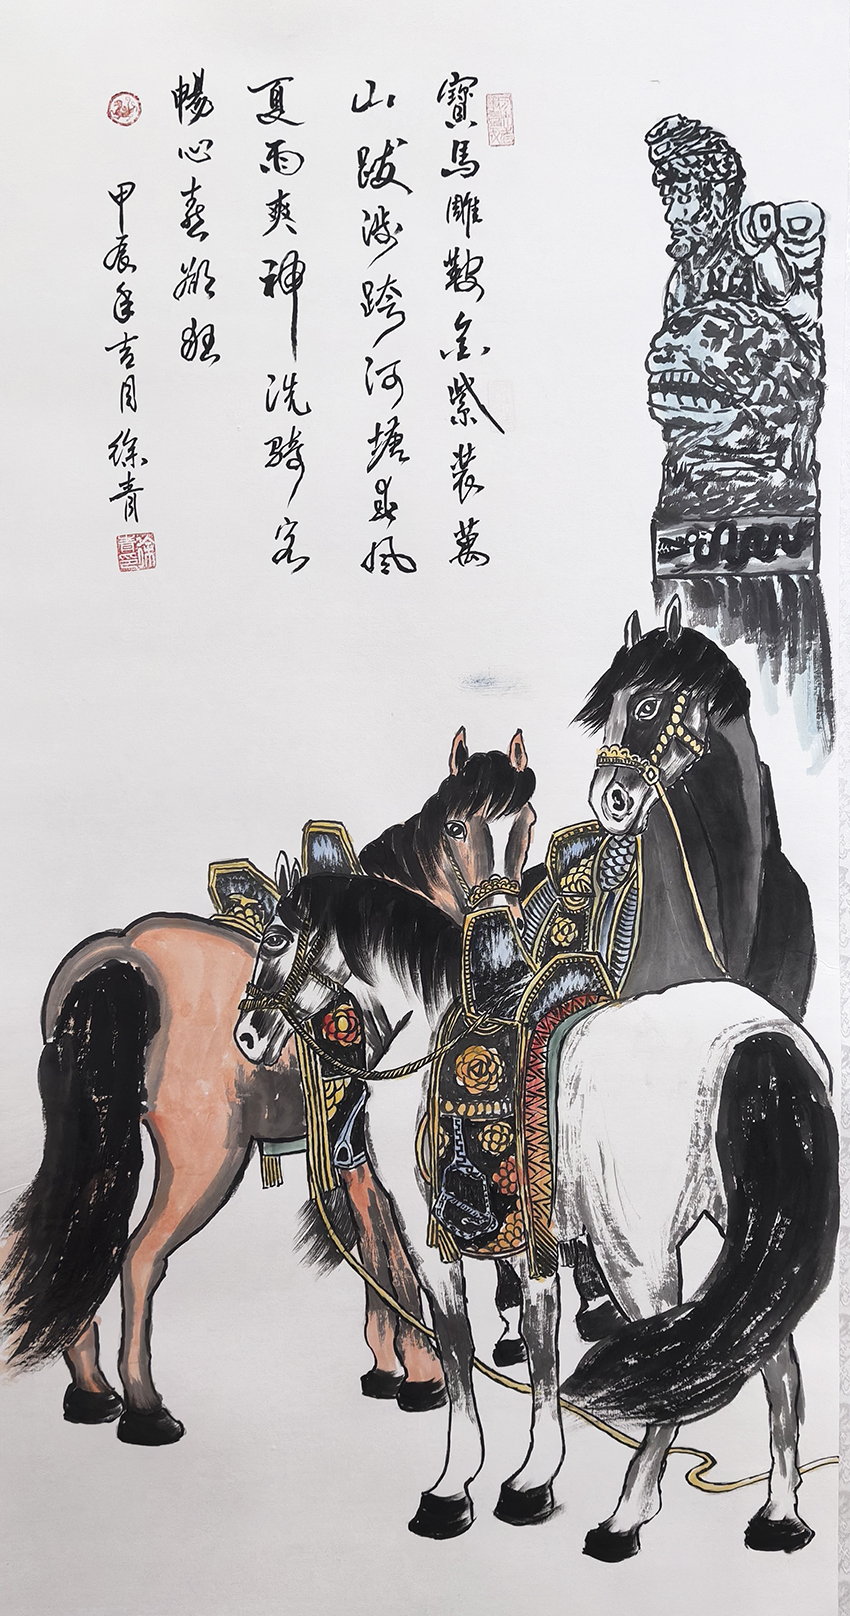 寶馬雕鞍金紫裝萬
山跋涉跨河塘春風
夏雨爽神洗騎客
暢心喜欲狂
甲辰年吉月徐青
徐青印